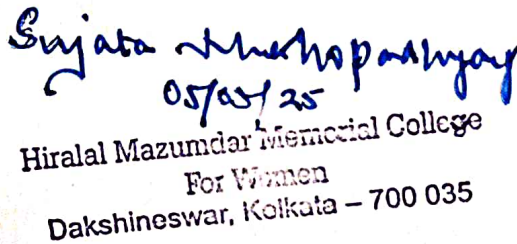 Sujata Mukhopadhyay
05/05/25
Hiralal Mazumdar Memorial College
For Women
Dakshineswar, Kolkata – 700 035